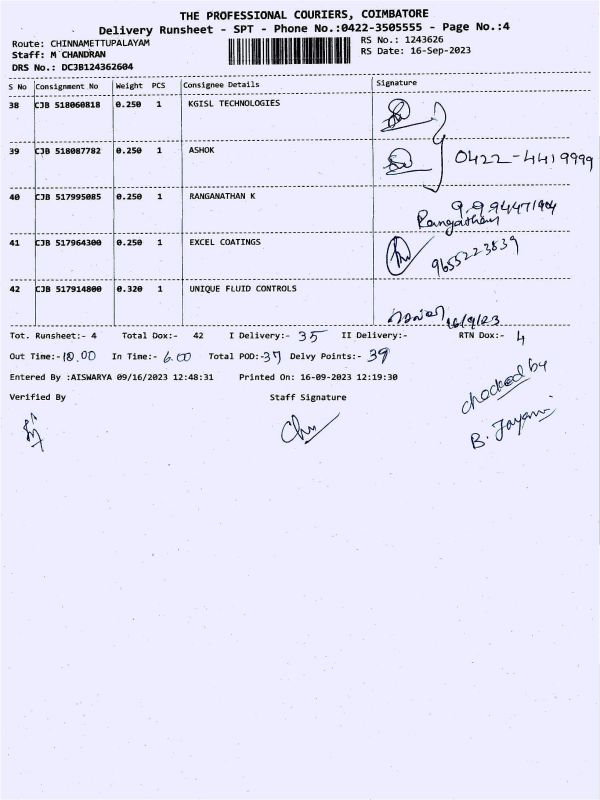 THE PROFESSIONAL COURIERS, COIMBATORE
Delivery Runsheet - SPT - Phone No.:0422-3505555 - Page No.:4
Route: CHINNAMETTUPALAYAM RS No.: 1243626
Staff: M CHANDRAN RS Date: 16-Sep-2023
DRS No.: DC3B124362604
S No Consignment No Weight PCS Consignee Details Signature
38 CJB 518060818 0.250 1 KGISL TECHNOLOGIES
39 CJB 518087782 0.250 1 ASHOK 0422-4419999
40 CJB 517995085 0.250 1 RANGANATHAN K
41 CJB 517964300 0.250 1 EXCEL COATINGS 9655223839
42 CJB 517914800 0.320 1 UNIQUE FLUID CONTROLS
16/9/23
Tot. Runsheet:- 4 Total Dox:- 42 I Delivery:- 35 II Delivery:- RTN Dox:- 4
Out Time:- 10.00 In Time:- 6.00 Total POD:- 37 Delvy Points:- 39
Entered By :AISWARYA 09/16/2023 12:48:31 Printed On: 16-09-2023 12:19:30
Verified By Staff Signature
checked by
B. Jayam